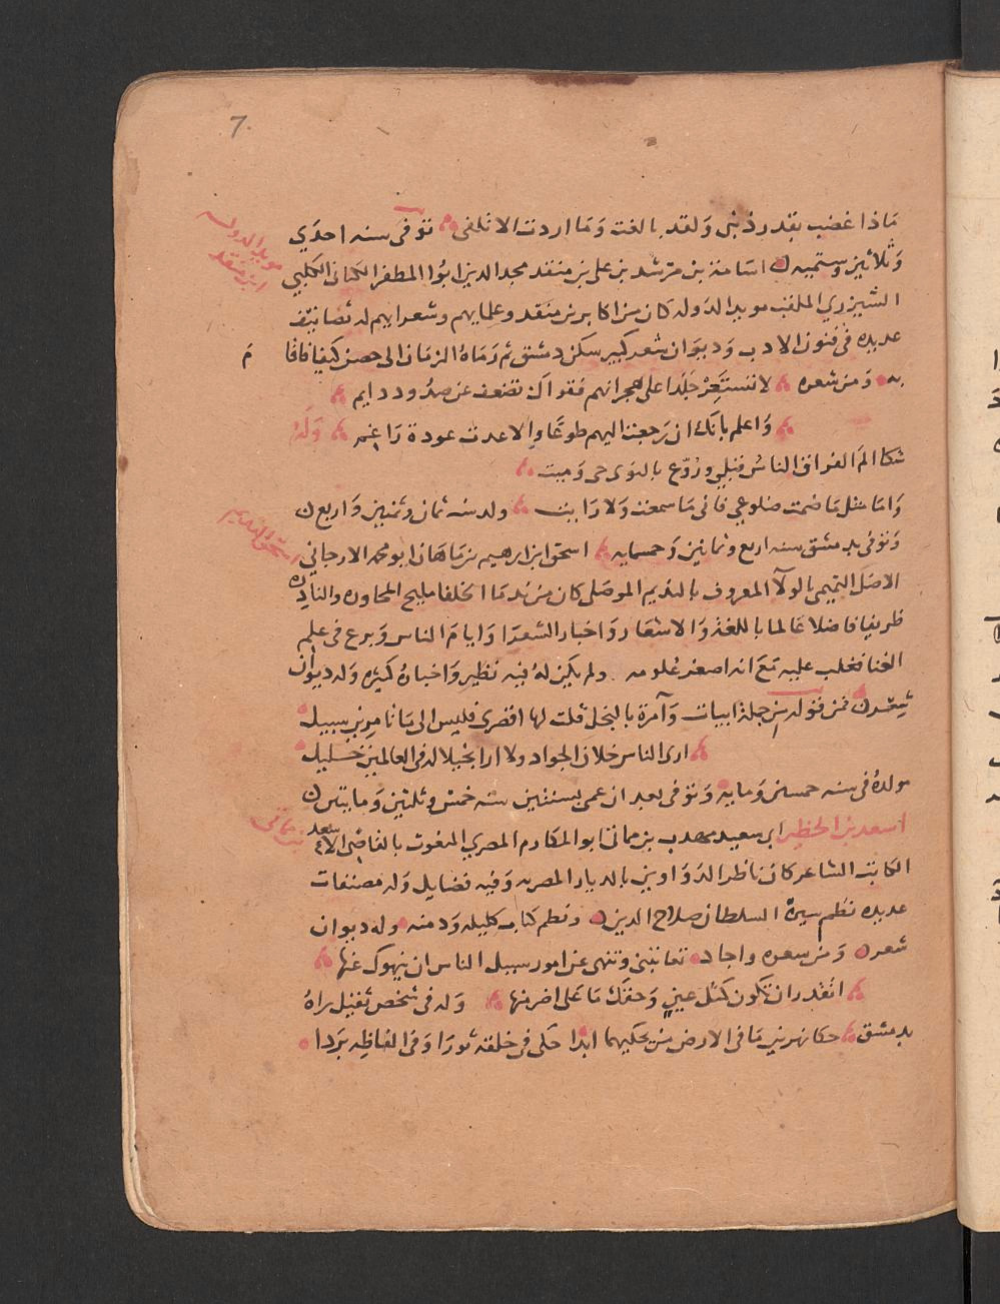 7.
ماذا غضب بقدر ذنبى ولقد بالغت وما اردت الا تلفى توفى سنه احدي
مويد الدوله
ابن منقذ
وثلاثين وستميه اسامة بن مرشد بن على بن منقد مجد الدين ابوا المظفر الكنانى الكلبي
الشيزري الملقب مويد الدوله كان من اكابر بنى منقد وعلمايهم وشعرايهم له تصانيف
عديده فى فنون الادب وديوان شعر كبير سكن دمشق ثم رماه الزمان الى حصن كيفا فاقا م
به ومن شعره لا تستعر جلدا على هجرانهم فقواك تضعف عن صدود دايم
واعلم بانك ان رجعت اليهم طوعًا والا عدت عودة راغم وله
شكا الم الفراق الناس قبلي وروع بالنوى حى وميت
واما مثل ما ضمت ضلوعي فانى ما سمعت ولا رايت ولد سنه ثمان وثمنين واربع
وتوفى بدمشق سنه اربع وثمانين وخمسمايه اسحق ابن ابرهيم بن ماهان ابو محمد الارجاني
اسحق النديم
الاصل التميمى بالولآ المعروف بالنديم الموصلى كان من ندما الخلفا مليح المحاوره والنادره
ظريفا فاضلا عالما باللغة والاشعار واخبار الشعرا وايام الناس وبرع فى علم
الغنا فغلب عليه مع انه اصغر علومه ولم يكن له فيه نظير واخباره كثيره وله ديوان
شعر فمن قوله من جملة ابيات وآمرة بالبخل قلت لها اقصرى فليس الى ما تامرين سبيل
ارى الناس خلان الجواد ولا ارا بخيلا له فى العالمين خليل
مولده فى سنه خمسين ومايه وتوفى بعد ان عمى بسنتين سنه خمس وثلثين ومايتين
اسعد بن الخطير ابى سعيد مهدب بن مماتى ابو المكارم المصري المنعوت بالقاضى الاسعد
بن مماتى
الكاتب الشاعر كان ناظر الدواوين بالديار المصريه وفيه فضايل وله مصنفات
عديده نظم سيرة السلطان صلاح الدين ونظم كتاب كليله ودمنه وله ديوان
شعر ومن شعره واجاد تعاتبنى وتنهى عن امور سبيل الناس ان ينهوك عنها
اتقدر ان تكون كمثل عيني وحقك ما على اضر منها وله فى شخص ثقيل راه
بدمشق حكا نهرين ما فى الارض من يحكيهما ابدا حكى فى خلقه ثورا وفى الفاظه بردا